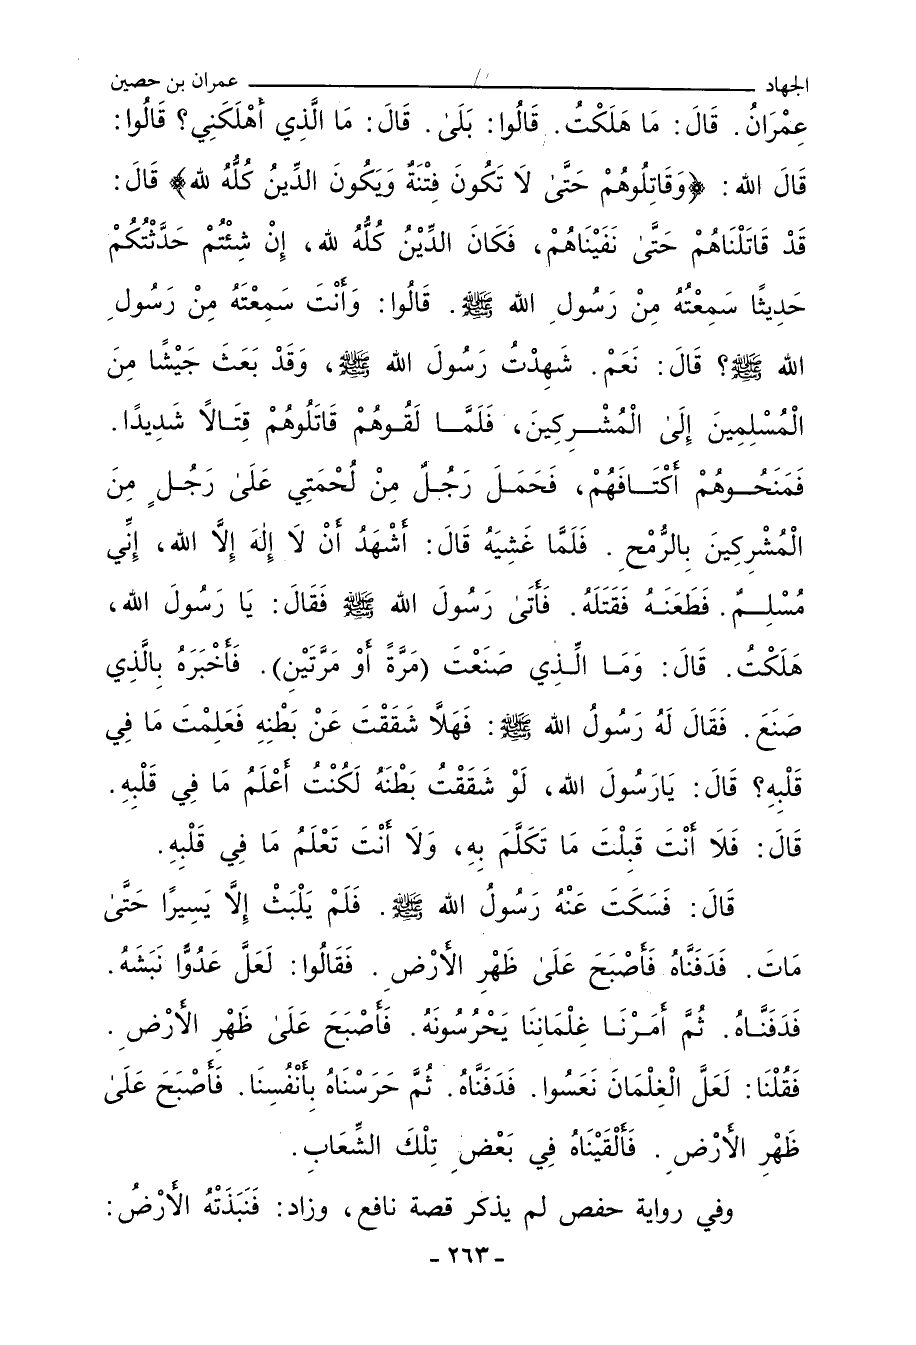 الجهاد عمران بن حصين
عِمْرَانُ. قَالَ: مَا هَلَكْتُ. قَالُوا: بَلَىٰ. قَالَ: مَا الَّذِي أَهْلَكَنِي؟ قَالُوا:
قَالَ الله: ﴿وَقَاتِلُوهُمْ حَتَّىٰ لَا تَكُونَ فِتْنَةٌ وَيَكُونَ الدِّينُ كُلُّهُ لله﴾ قَالَ:
قَدْ قَاتَلْنَاهُمْ حَتَّىٰ نَفَيْنَاهُمْ، فَكَانَ الدِّيْنُ كُلُّهُ لله، إِنْ شِئْتُمْ حَدَّثْتُكُمْ
حَدِيثًا سَمِعْتُهُ مِنْ رَسُولِ الله ﷺ. قَالُوا: وَأَنْتَ سَمِعْتَهُ مِنْ رَسُولِ
الله ﷺ؟ قَالَ: نَعَمْ. شَهِدْتُ رَسُولَ الله ﷺ، وَقَدْ بَعَثَ جَيْشًا مِنَ
الْمُسْلِمِينَ إِلَىٰ الْمُشْرِكِينَ، فَلَمَّا لَقُوهُمْ قَاتَلُوهُمْ قِتَالًا شَدِيدًا.
فَمَنَحُوهُمْ أَكْتَافَهُمْ، فَحَمَلَ رَجُلٌ مِنْ لُحْمَتِي عَلَىٰ رَجُلٍ مِنَ
الْمُشْرِكِينَ بِالرُّمْحِ. فَلَمَّا غَشِيَهُ قَالَ: أَشْهَدُ أَنْ لَا إِلٰهَ إِلَّا الله، إِنِّي
مُسْلِمٌ. فَطَعَنَهُ فَقَتَلَهُ. فَأَتَىٰ رَسُولَ الله ﷺ فَقَالَ: يَا رَسُولَ الله،
هَلَكْتُ. قَالَ: وَمَا الَّذِي صَنَعْتَ (مَرَّةً أَوْ مَرَّتَيْنِ). فَأَخْبَرَهُ بِالَّذِي
صَنَعَ. فَقَالَ لَهُ رَسُولُ الله ﷺ: فَهَلَّا شَقَقْتَ عَنْ بَطْنِهِ فَعَلِمْتَ مَا فِي
قَلْبِهِ؟ قَالَ: يَارَسُولَ الله، لَوْ شَقَقْتُ بَطْنَهُ لَكُنْتُ أَعْلَمُ مَا فِي قَلْبِهِ.
قَالَ: فَلَا أَنْتَ قَبِلْتَ مَا تَكَلَّمَ بِهِ، وَلَا أَنْتَ تَعْلَمُ مَا فِي قَلْبِهِ.
قَالَ: فَسَكَتَ عَنْهُ رَسُولُ الله ﷺ. فَلَمْ يَلْبَثْ إِلَّا يَسِيرًا حَتَّىٰ
مَاتَ. فَدَفَنَّاهُ فَأَصْبَحَ عَلَىٰ ظَهْرِ الأَرْضِ. فَقَالُوا: لَعَلَّ عَدُوًّا نَبَشَهُ.
فَدَفَنَّاهُ. ثُمَّ أَمَرْنَا غِلْمَانَنَا يَحْرُسُونَهُ. فَأَصْبَحَ عَلَىٰ ظَهْرِ الأَرْضِ.
فَقُلْنَا: لَعَلَّ الْغِلْمَانَ نَعَسُوا. فَدَفَنَّاهُ. ثُمَّ حَرَسْنَاهُ بِأَنْفُسِنَا. فَأَصْبَحَ عَلَىٰ
ظَهْرِ الأَرْضِ. فَأَلْقَيْنَاهُ فِي بَعْضِ تِلْكَ الشِّعَابِ.
وفي رواية حفص لم يذكر قصة نافع، وزاد: فَنَبَذَتْهُ الأَرْضُ:
- ٢٦٣ -